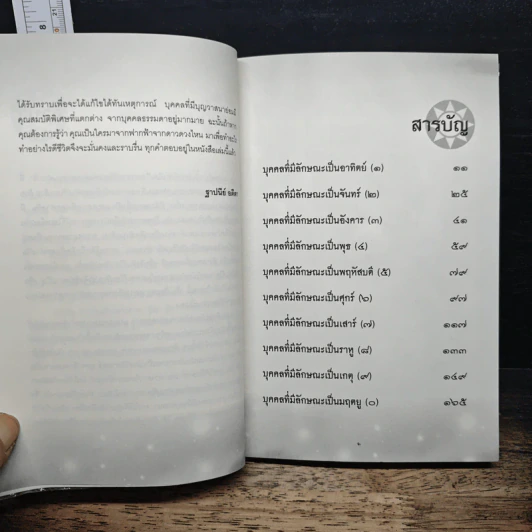 ได้รับทราบเพื่อจะได้แก้ไขได้ทันเหตุการณ์ บุคคลที่มีบุญวาสนาย่อมมี
คุณสมบัติพิเศษที่แตกต่าง จากบุคคลธรรมดาอยู่มากมาย ฉะนั้นถ้าหาก
คุณต้องการรู้ว่า คุณเป็นใครมาจากฟากฟ้าจากดาวดวงไหน มาเพื่อทำอะไร
ทำอย่างไรดีชีวิตจึงจะมั่นคงและราบรื่น ทุกคำตอบอยู่ในหนังสือเล่มนี้แล้ว
ฐาปนีย์
สารบัญ
บุคคลที่มีลักษณะเป็นอาทิตย์ (๑) ๑๑
บุคคลที่มีลักษณะเป็นจันทร์ (๒) ๒๕
บุคคลที่มีลักษณะเป็นอังคาร (๓) ๔๑
บุคคลที่มีลักษณะเป็นพุธ (๔) ๕๙
บุคคลที่มีลักษณะเป็นพฤหัสบดี (๕) ๗๙
บุคคลที่มีลักษณะเป็นศุกร์ (๖) ๙๗
บุคคลที่มีลักษณะเป็นเสาร์ (๗) ๑๑๗
บุคคลที่มีลักษณะเป็นราหู (๘) ๑๓๓
บุคคลที่มีลักษณะเป็นเกตุ (๙) ๑๔๙
บุคคลที่มีลักษณะเป็นมฤตยู (๐) ๑๖๕